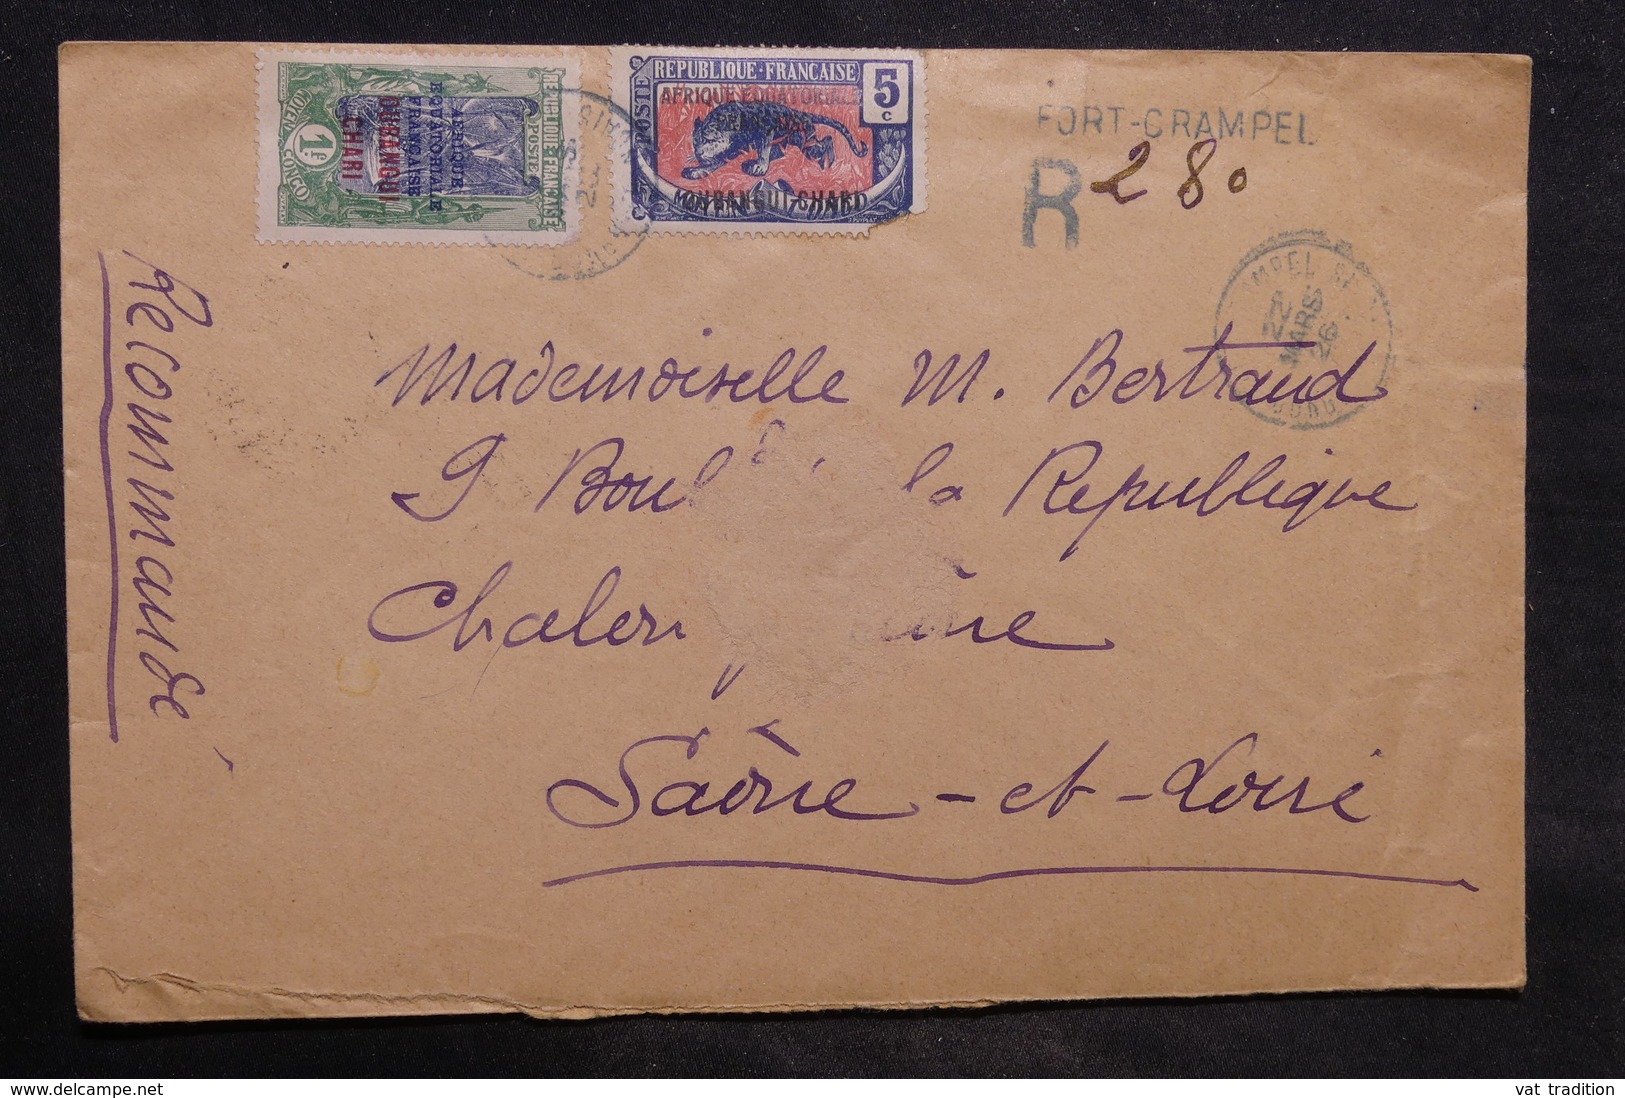 1F
CONGO
MOYEN
RÉPUBLIQUE-FRANÇAISE
POSTES
AFRIQUE
EQUATORIALE
FRANÇAISE
OUBANGUI
CHARI
RÉPUBLIQUE·FRANÇAISE
POSTES
5
c
AFRIQUE EQUATORIALE
FRANÇAISE
OUBANGUI-CHARI
FORT-CRAMPEL
R 280
MARS
26
Recommandé
Mademoiselle M. Bertrand
9 Boul la Republique
Saône-et-Loire
www.delcampe.net
vat tradition